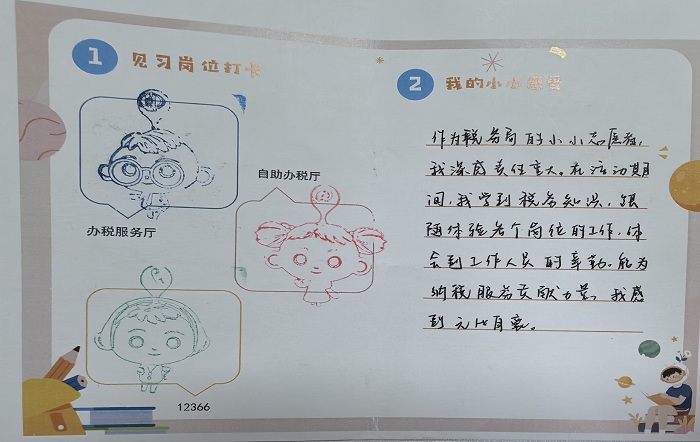 1 见习岗位打卡
办税服务厅
自助办税厅
12366
2 我的小小感受
作为税务局的小小志愿者,
我深感责任重大。在活动期
间,我学到税务知识,跟
随体验各个岗位的工作,体
会到工作人员的辛勤。能为
纳税服务贡献力量,我感
到无比自豪。